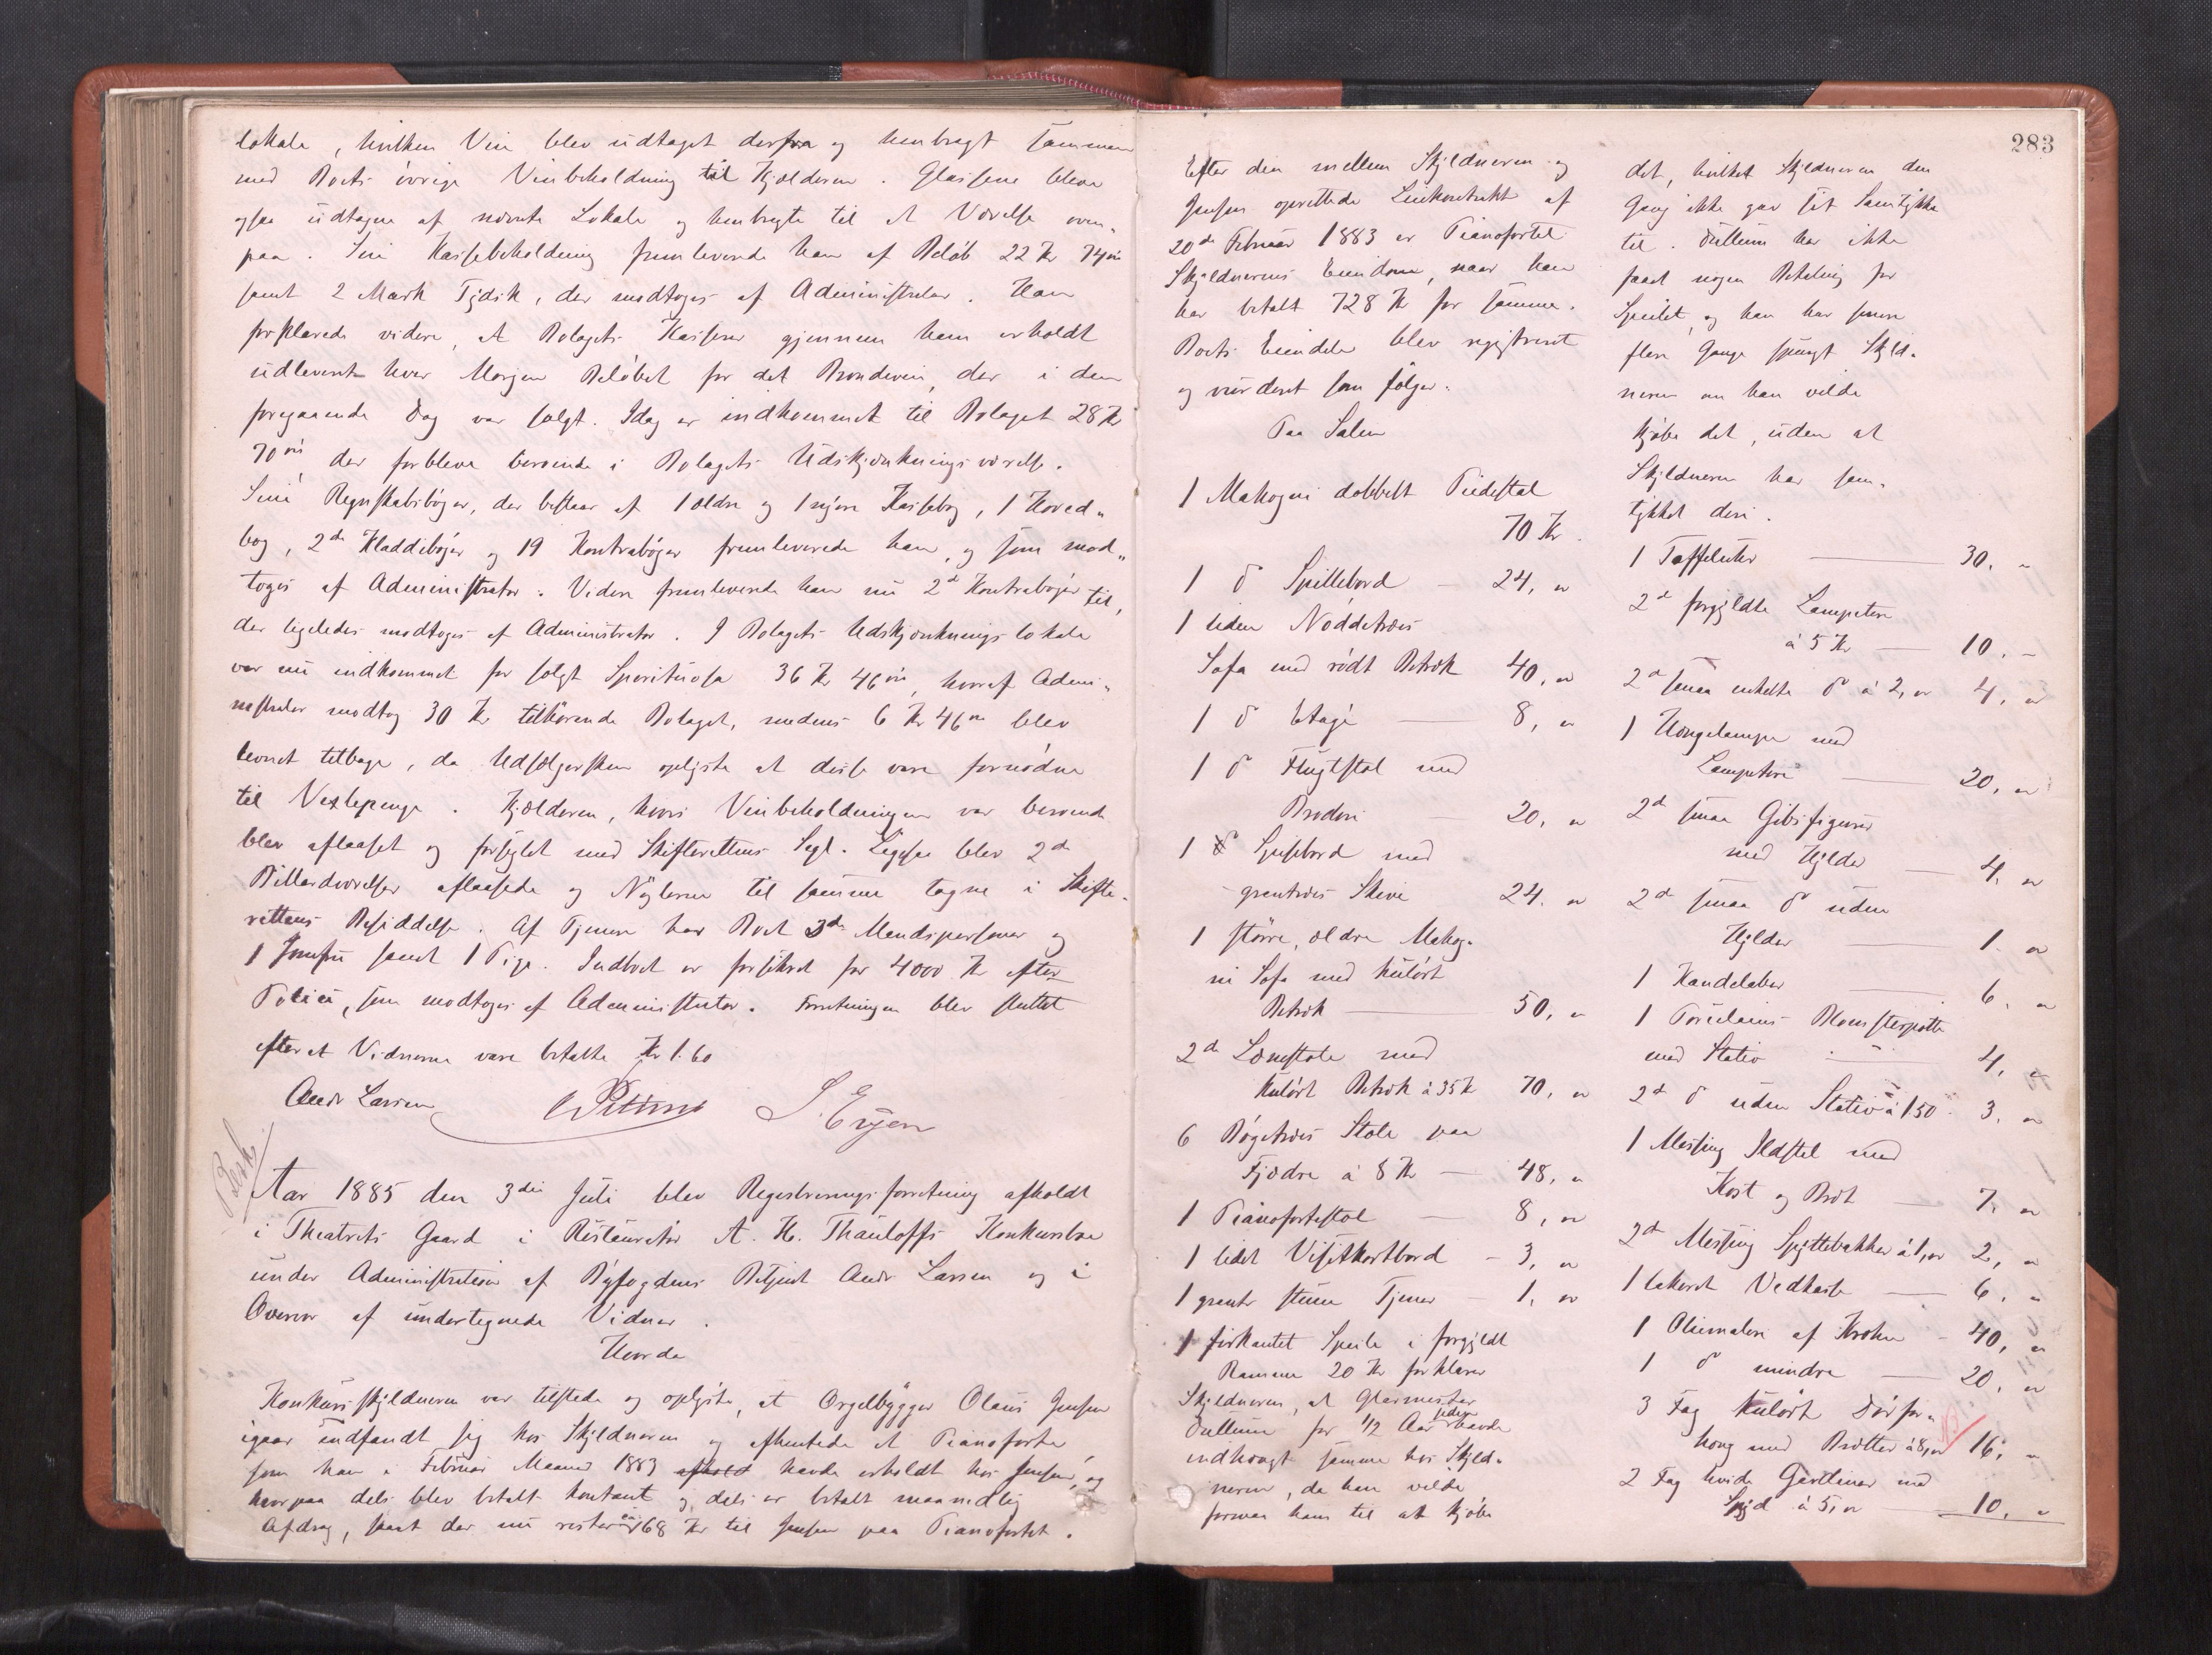 lokale, hvilken Vin blev udtaget derfra og henbragt sammen
med Boets övrige Vinbeholdning til Kjælderen. Glassene bleve
ogsaa udtagne af nævnte Lokale og henbragte til et Værelse oven-
paa. Sin Kassebeholdning fremleverede han af Beløb 22 Kr 74 øre
samt 2 Mark Tydsk, der modtoges af Administrator. Han
forklarede videre, at Bolagets Kasserer gjennem ham erholdt
udleveret hver Morgen Beløbet for det Brændevin, der i den
foregaaende Dag var solgt. Idag er indkommet til Bolaget 28 Kr
70 øre, der forbleve beroende i Bolagets Udskjænkningsværelse.
Sine Regnskabsbøger, der bestaar af 1 ældre og 1 nyere Kassebog, 1 Hoved-
bog, 2de Kladdebøger og 19 Kontrabøger fremleverede han, og som mod-
toges af Administrator. Videre fremleverede han nu 2de Kontrabøger til,
der ligeledes modtoges af Administrator. I Bolagets Udskjænkningslokale
var nu indkommet for solgt Spirituosa 36 Kr 46 øre, hvoraf Admi-
nistrator modtog 30 Kr tilhørende Bolaget, medens 6 Kr 46 øre blev
leveret tilbage, da Udsælgersken oplyste at disse vare fornødne
til Vexlepenge. Kjælderen, hvori Vinbeholdningen var beroende
blev aflaaset og forseglet med Skifterettens Segl. Ligesaa blev 2de
Billardværelser aflaasede og Nøglerne til samme tagne i Skifte-
rettens Besiddelse. Af Tjenere har Boet 3de Mandspersoner og
1 Jomfru samt 1 Pige. Indboet er forsikret for 4000 Kr efter
Police, som modtoges af Administrator. Forretningen blev sluttet
efterat Vidnerne vare betalte Kr 1.60
Andr Larsen S. Erzen
Besk.
Aar 1885 den 3die Juli blev Registreringsforretning afholdt
i Theatrets Gaard i Restauratør A. H. Thauloffs Konkursbo
under Administration af Byfogdens Betjent Andr Larsen og i
Overvær af undertegnede Vidner.
Hvorda
Konkursskyldneren var tilstede og oplyste, at Orgelbygger Olaus Jensen
igaar indfandt sig hos Skyldneren og afhentede et Pianoforte
som han i Februar Maaned 1883 havde erholdt hos Jensen, og
hvorpaa dels blev betalt kontant og dels er betalt maanedlig
Afdrag, saat der nu resterer 168 Kr til Jensen paa Pianofortet.
283
Efter den mellem Skyldneren og
Jensen oprettede Leiekontrakt af
20de Februar 1883 er Pianofortet
Skyldnerens Eiendom, naar han
har betalt 728 Kr for samme.
Boets Eiendele blev registreret
og vurderet som følger:
Paa Salen
1 Mahogni dobbelt Piedestal
70 Kr.
1 do Spillebord — 24, "
1 liden Nøddetræs
Sofa med rødt Betræk 40, "
1 do Etagè — 8, "
1 do Flugtstol med
Broderi — 20, "
1 Spisebord med
grantræs Skive 24. "
1 större, ældre Mahog-
ni Sofa med kulørt
Betræk — 50, "
2de Lænestole med
kulørt Betræk à 35 Kr 70, "
6 Bøgetræs Stole paa
Fjædre à 8 Kr — 48, "
1 Pianofortestol — 8, "
1 lidet Visitkortbord — 3, "
1 grantr stum Tjener — 1, "
1 firkantet Speile i forgyldt
Ramme 20 Kr forklarer
Skyldneren, at Glarmester
Dullum for 1/2 Aar siden havde
indhængt samme hos Skyld-
neren, da han vilde
formaa ham til at kjøbe
det, hvilket Skyldneren den
Gang ikke gav sit Samtykke
til. Dullum har ikke
faaet nogen Betaling for
Speilet, og han har senere
flere Gange spurgt Skyld-
neren om han vilde
kjøbe det, uden at
Skyldneren har sam-
tykket deri.
1 Taffeluhr — 30. "
2de forgyldte Lampetter
à 5 Kr — 10. "
2de smaa enkelte do à 2, " 4, "
1 Hængelampe med
Lampetter — 20, "
2de smaa Gibsfigurer
med Hylder — 4. "
2de smaa do uden
Hylder — 1. "
1 Kandelaber — 6. "
1 Porcelains Blomsterpotte
med Stativ — 4, "
2de do uden Stativ à 1.50 3. "
1 Messing Ildstel med
Kost og Bræt — 7. "
2de Messing Spyttebakker à 1, " 2, "
1 lakeret Vedkasse — 6. "
1 Oliemaleri af Krohn — 40, "
1 do mindre — 20, "
3 Fag kulørt Dørfor-
hæng med Brætter à 8, " 16, "
2 Fag hvide Gardiner med
Spyd à 5, " — 10, "